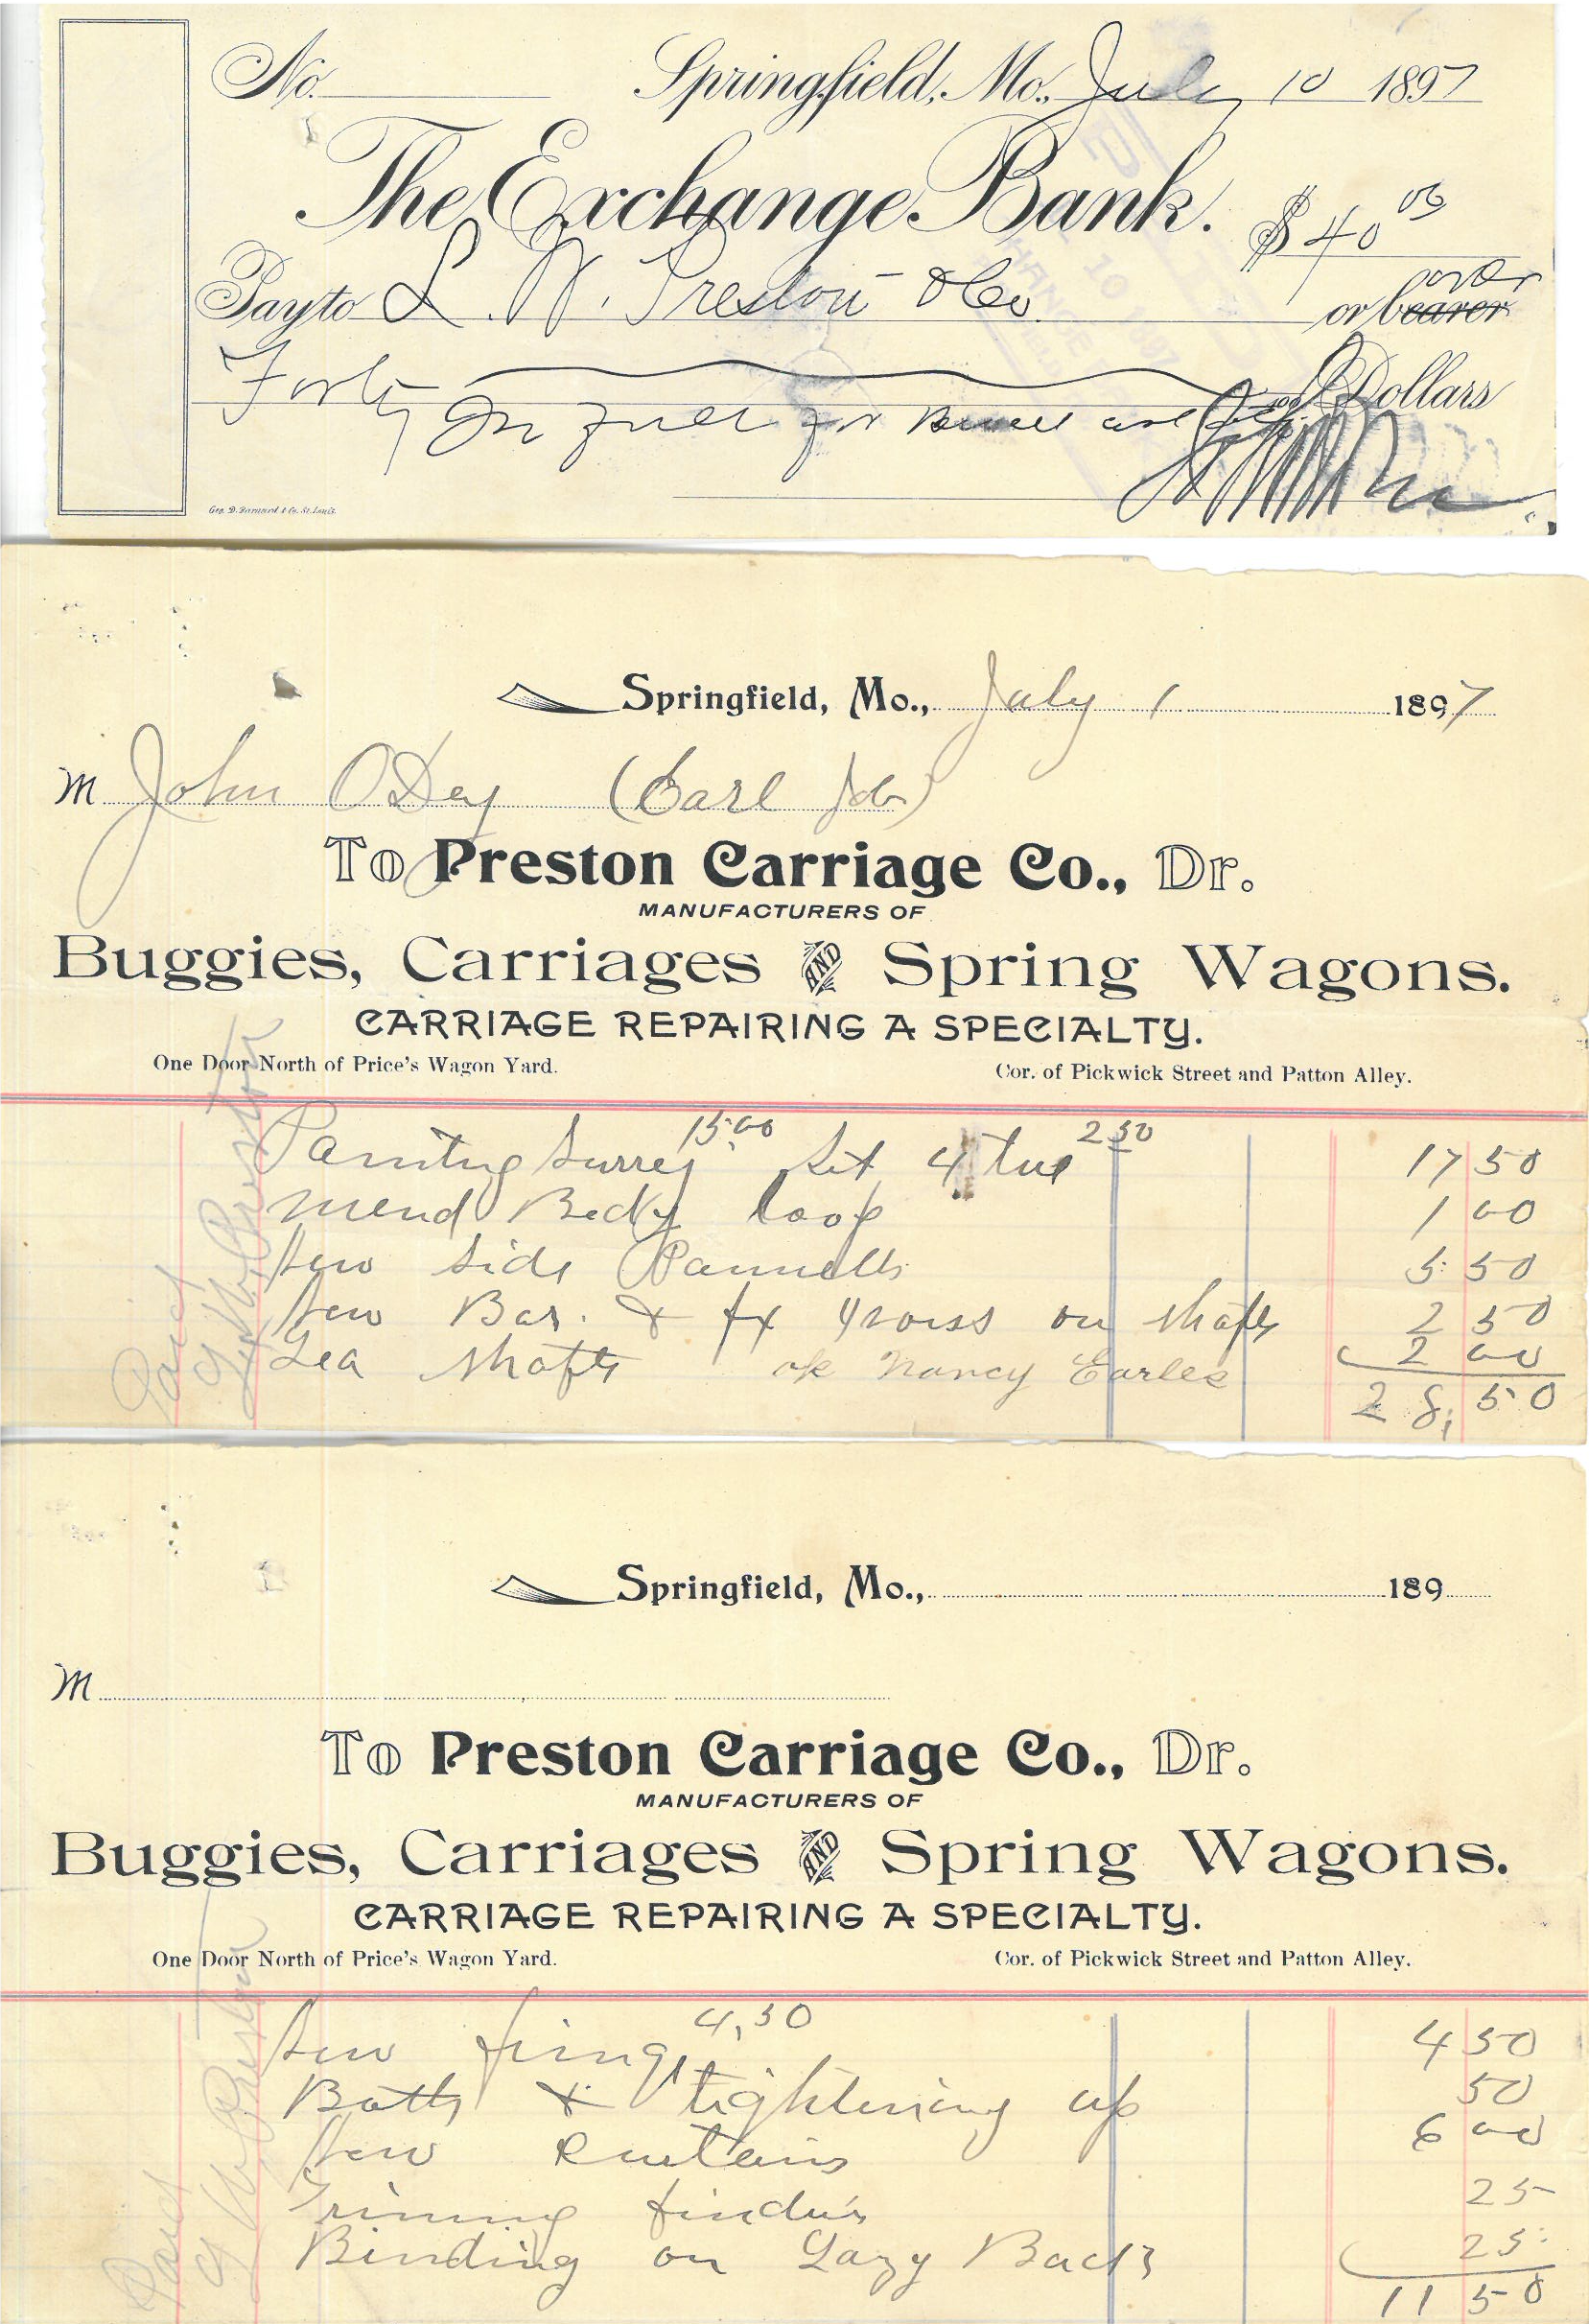 No. Springfield, Mo., July 10 1897
The Exchange Bank. $40 00
order
Pay to L. W. Preston & Co or bearer
Forty Dollars
In full for
Geo. D. Barnard & Co. St. Louis.
Springfield, Mo., July 1 1897
M John ODay (Earl Job)
To Preston Carriage Co., Dr.
MANUFACTURERS OF
Buggies, Carriages AND Spring Wagons.
CARRIAGE REPAIRING A SPECIALTY.
One Door North of Price's Wagon Yard. Cor. of Pickwick Street and Patton Alley.
Painting Surrey 15.00 Set 4 2 50 17 50
mend Body loop 1 00
New Side Pannells 5.50
New Bar. & fx on shafts 2 50
Lea shafts ok Nancy Earles 2 00
28.50
Paid
Preston
Springfield, Mo., 189
M
To Preston Carriage Co., Dr.
MANUFACTURERS OF
Buggies, Carriages AND Spring Wagons.
CARRIAGE REPAIRING A SPECIALTY.
One Door North of Price's Wagon Yard. Cor. of Pickwick Street and Patton Alley.
New fringe 4,50 4 50
Bolts & tightening up 50
New Curtains 6 00
Triming finders 25
Binding on Lazy Back 25
11 50
Paid
Preston